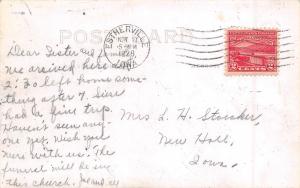 POST CARD
ESTHERVILLE
NOV 11
5-PM
1929
IOWA
2 CENTS 2
Dear Sister and
we arived here
2:30 left home some-
thing after 7, Sure
had a fine trip.
Havent seen any-
one yet. Wish you
were with us. The
funeral will be in
this church.
Mrs L. H.
New Holl,
Iowa.